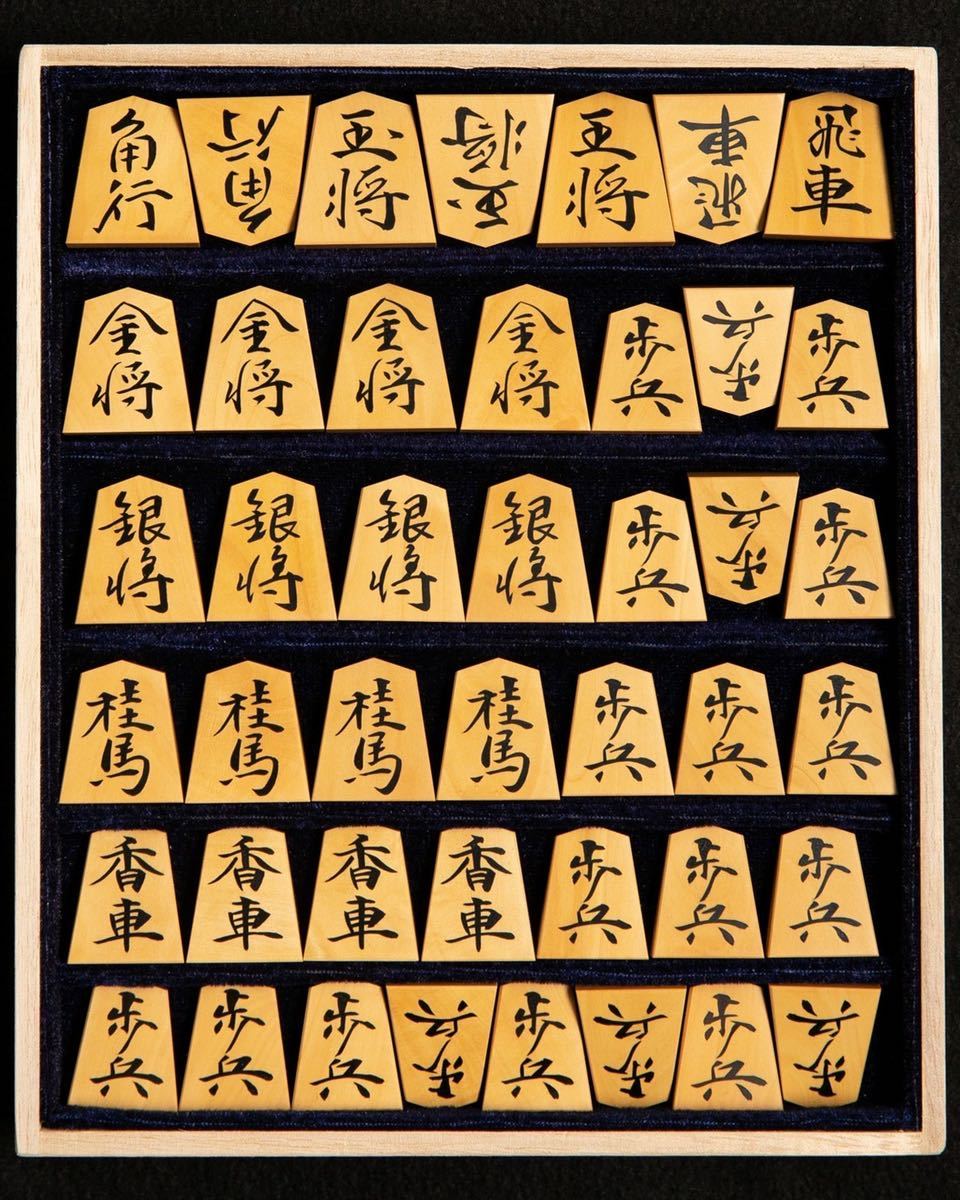 角行
角行
玉将
玉将
王将
飛車
飛車
金将
金将
金将
金将
歩兵
歩兵
歩兵
銀将
銀将
銀将
銀将
歩兵
歩兵
歩兵
桂馬
桂馬
桂馬
桂馬
歩兵
歩兵
歩兵
香車
香車
香車
香車
歩兵
歩兵
歩兵
歩兵
歩兵
歩兵
歩兵
歩兵
歩兵
歩兵
歩兵